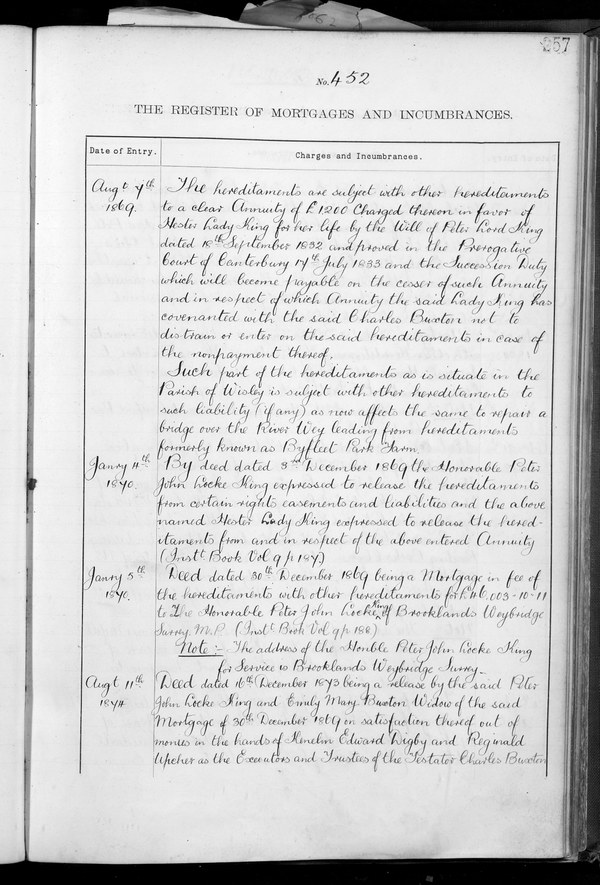 257
No. 452
THE REGISTER OF MORTGAGES AND INCUMBRANCES.
Date of Entry.
Charges and Incumbrances.
Augt. 7th 1869.
The hereditaments are subject with other hereditaments
to a clear Annuity of £1200 Charged thereon in favor of
Hester Lady King for her life by the Will of Peter Lord King
dated 18th September 1832 and proved in the Prerogative
Court of Canterbury 17th July 1833 and the Succession Duty
which will become payable on the cesser of such Annuity
and in respect of which Annuity the said Lady King has
covenanted with the said Charles Buxton not to
distrain or enter on the said hereditaments in case of
the nonpayment thereof.
Such part of the hereditaments as is situate in the
Parish of Wisley is subject with other hereditaments to
such liability (if any) as now affects the same to repair a
bridge over the River Wey leading from hereditaments
formerly known as Byfleet Park Farm.
Janry 4th 1870.
By deed dated 3rd December 1869 the Honorable Peter
John Locke King expressed to release the hereditaments
from certain rights easements and liabilities and the above
named Hester Lady King expressed to release the hered-
itaments from and in respect of the above entered Annuity
(Inst. Book Vol 9 p 187)
Janry 5th 1870.
Deed dated 30th December 1869 being a Mortgage in fee of
the hereditaments with other hereditaments for £46,003-10-11
to The Honorable Peter John Locke King of Brooklands Weybridge
Surrey M.P. (Inst. Book Vol 9 p 188)
Note:- The address of the Honble Peter John Locke King
for Service is Brooklands Weybridge Surrey_
Augt 11th 1874
Deed dated 16th December 1873 being a release by the said Peter
John Locke King and Emily Mary Buxton Widow of the said
Mortgage of 30th December 1869 on satisfaction thereof out of
monies in the hands of Kenelm Edward Digby and Reginald
Upcher as the Executors and Trustees of the Testator Charles Buxton